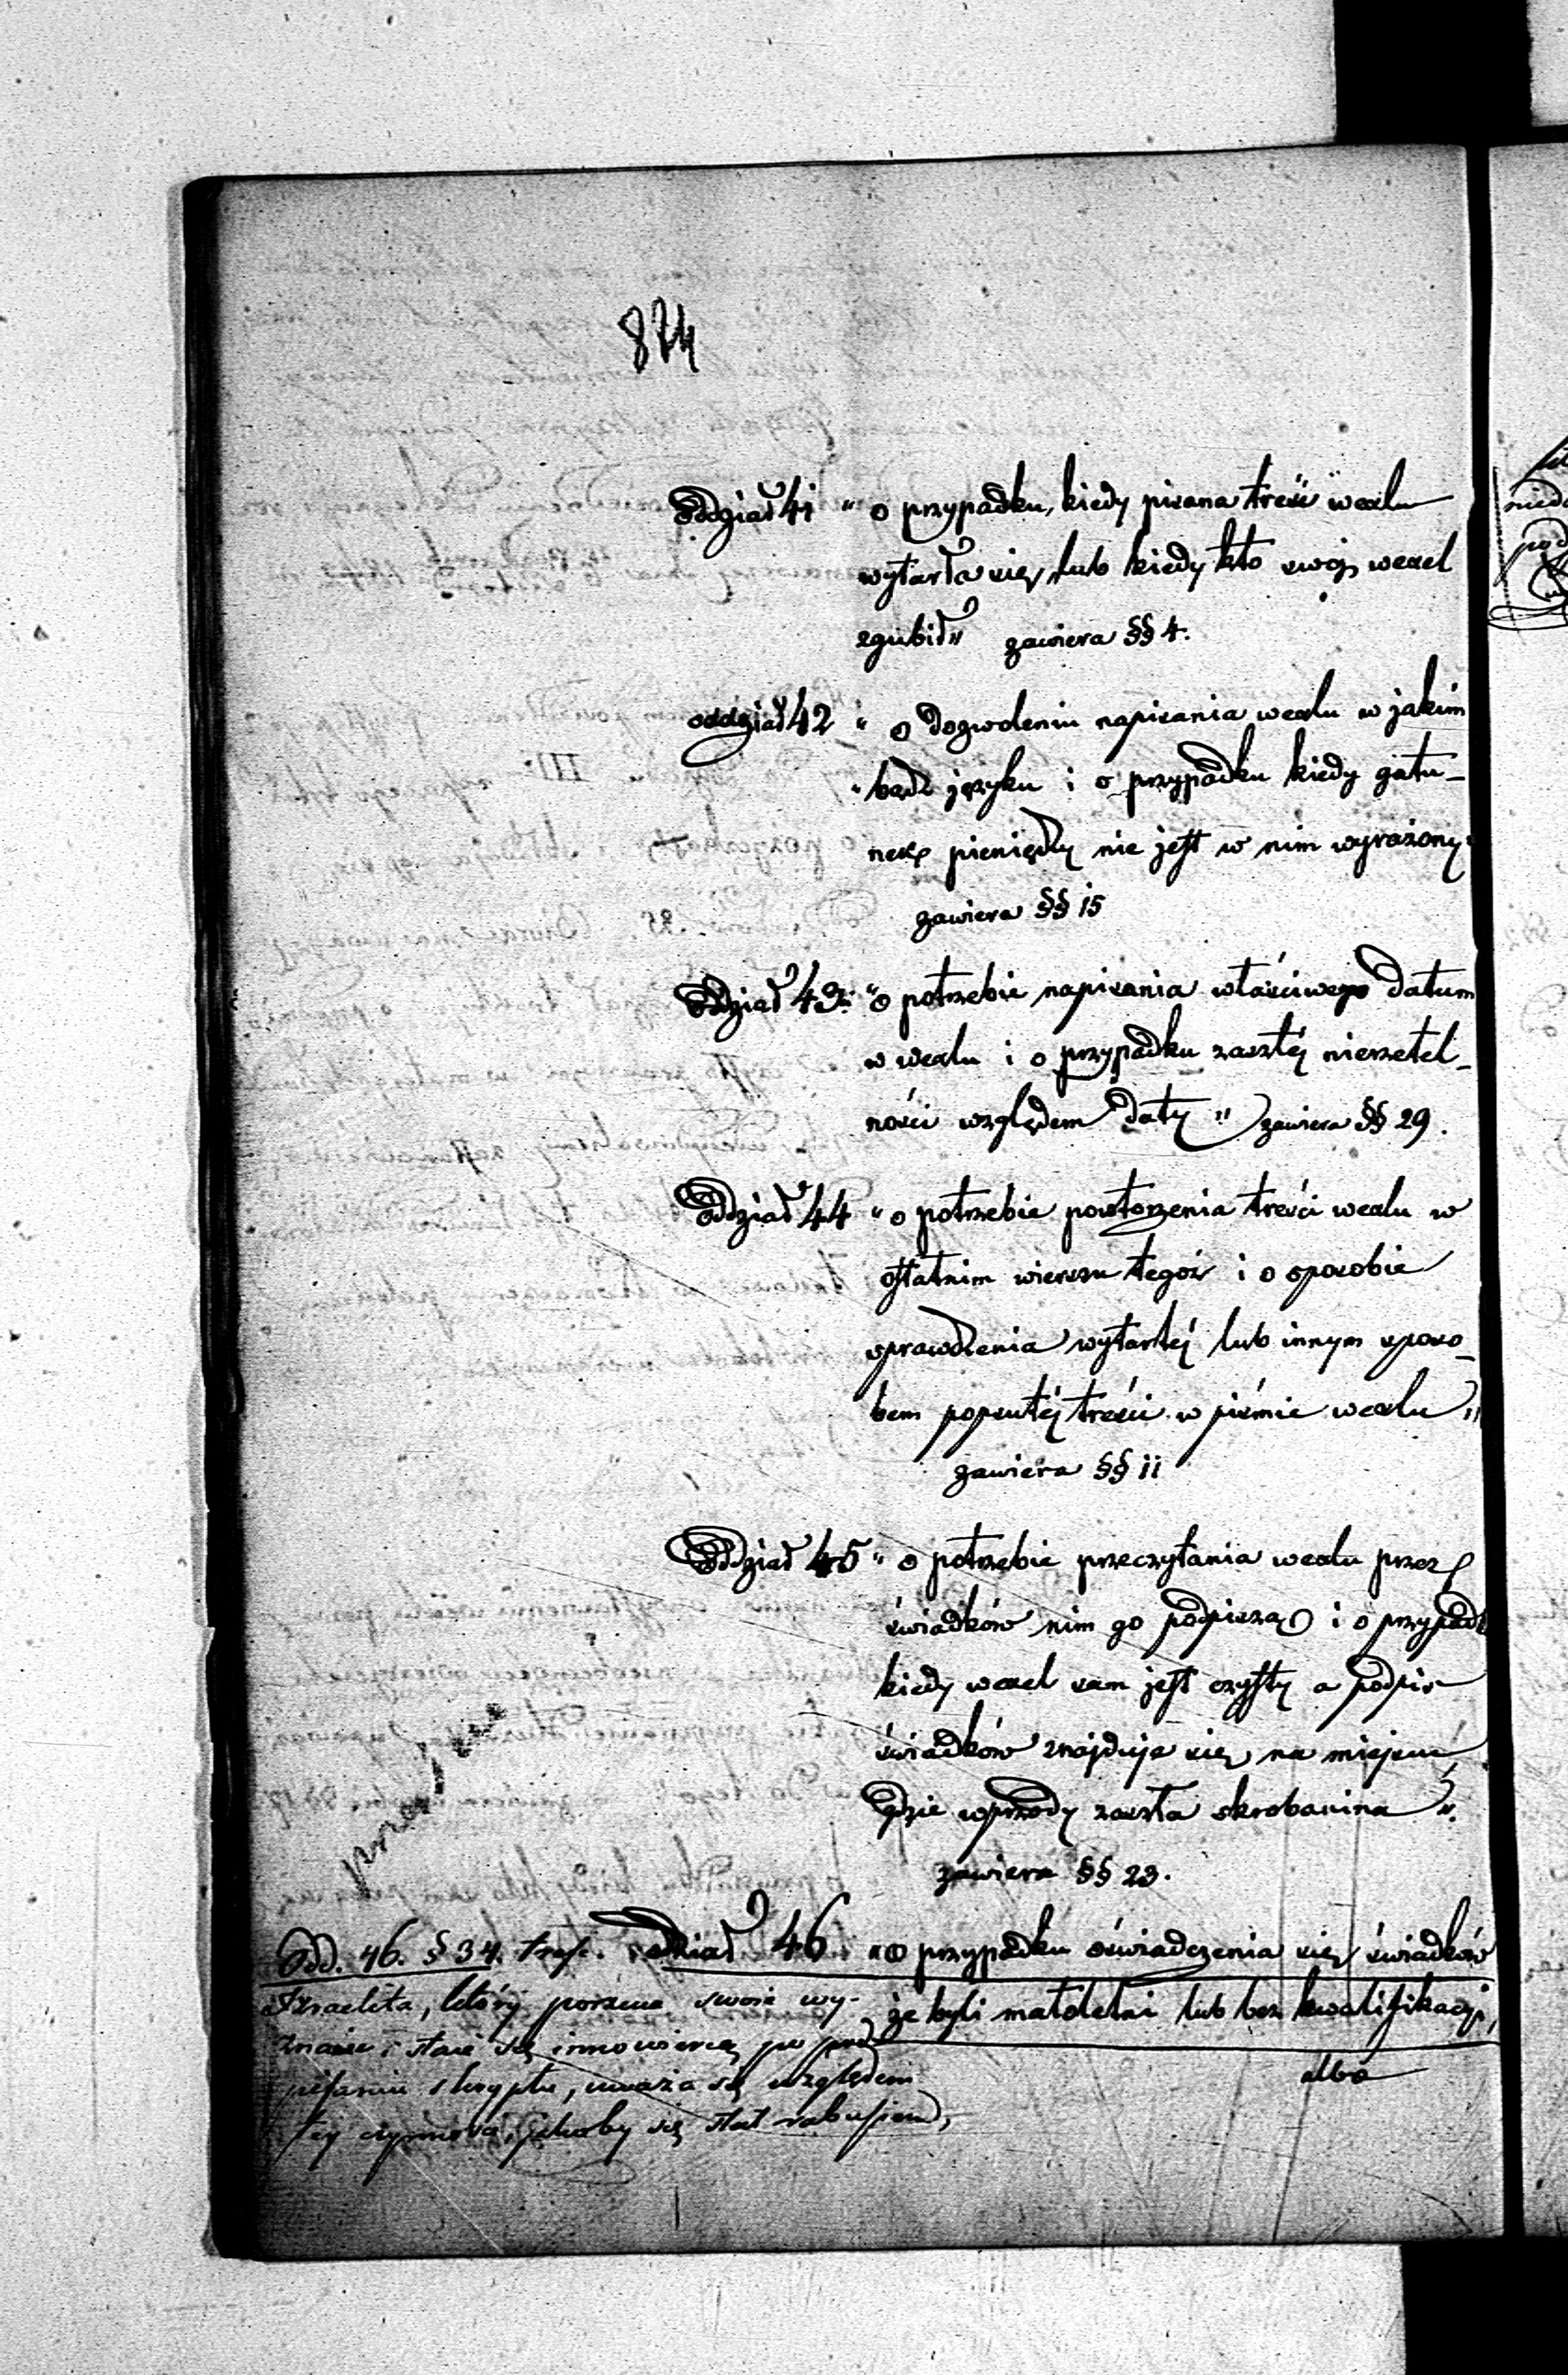 874
Oddział 41 " o przypadku, kiedy pisana treść wexlu
wytarła się, lub kiedy kto swój wexel
zgubił" zawiera §§ 4.
oddział 42 " o dozwoleniu napisania wexlu w jakim
" bądź języku i o przypadku kiedy gatu-
nek pieniędzy nie jest w nim wyrażony"
zawiera §§ 15
Oddział 43: "o potrzebie napisania właściwego datum
w wexlu i o przypadku zaszłéj nierzetel-
ności względem daty" zawiera §§ 29.
Oddział 44 " o potrzebie powtorzenia treści wexlu w
ostatnim wierszu tegoż i o sposobie
sprawdzenia wytartéj lub innym sposo-
bem popsutéj treści w piśmie wexlu"
zawiera §§ 11
Oddział 45 " o potrzebie przeczytania wexlu przez
świadków nim go podpiszą i o przypadk
kiedy wexel sam jest czysty a podpis
świadków znajduje się na miejscu
gdzie wprzody zaszła skrobanina".
zawiera §§ 23.
oddział 46 "o przypadku oświadczenia się świadków
że byli małoletni lub bez kwalifikacyi,
albo
Odd. 46. § 34.
Izraelita, który porzuca swoie wy-
znanie i staie się innowiercą po pod
pisaniu skryptu, uważa się względem
tey czynności, jakoby się stał rabusiem,